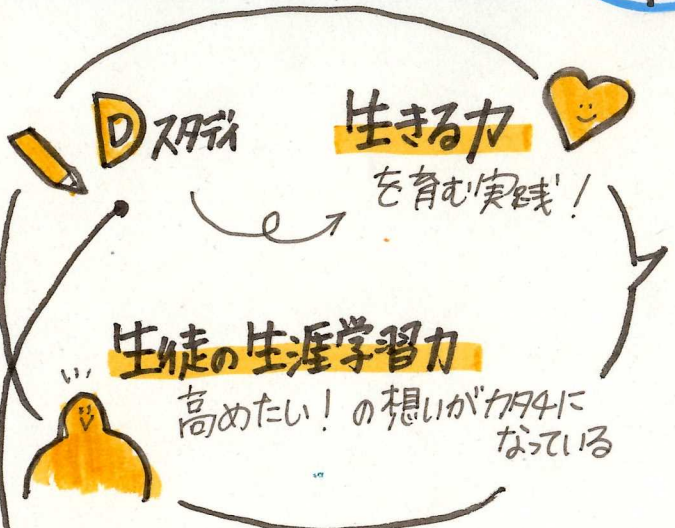 Dスタディ
生きる力
を育む実践！
生徒の生涯学習力
高めたい！の想いがカタチに
なっている